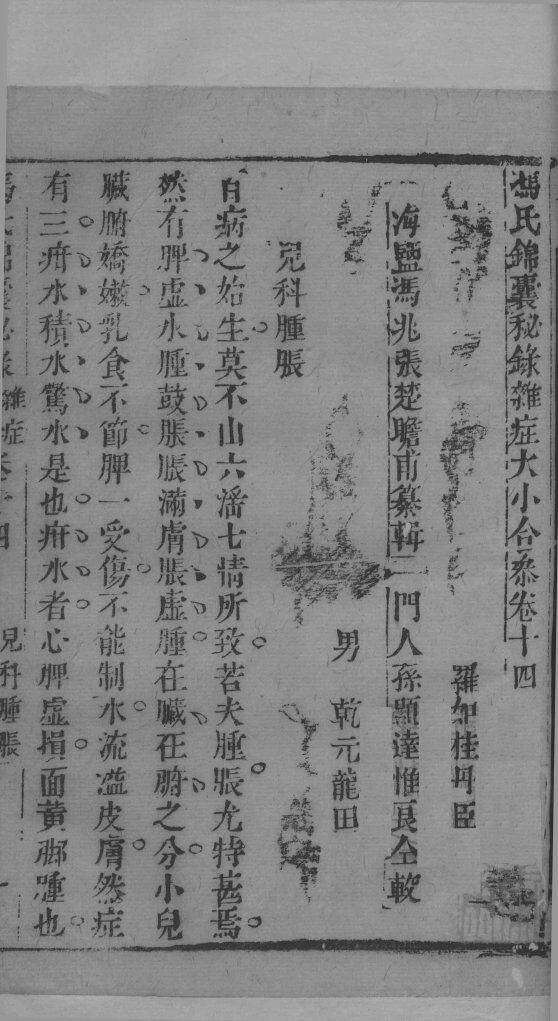 馮氏錦囊秘錄雜症大小合叅卷十四
羅如桂丹臣
海鹽馮兆張楚瞻甫纂輯 門人孫顯達惟良仝較
男 乾元龍田
兒科腫脹
百病之始生莫不由六淫七情所致若夫腫脹尤特甚焉
然有脾虛水腫鼓脹脹滿膚脹虛腫在臟在腑之分小兒
臟腑嬌嫩乳食不節脾一受傷不能制水流溢皮膚然症
有三疳水積水驚水是也疳水者心脾虛損面黃腳腫也
馮氏錦囊秘錄 雜症卷十四 兒科腫脹 一